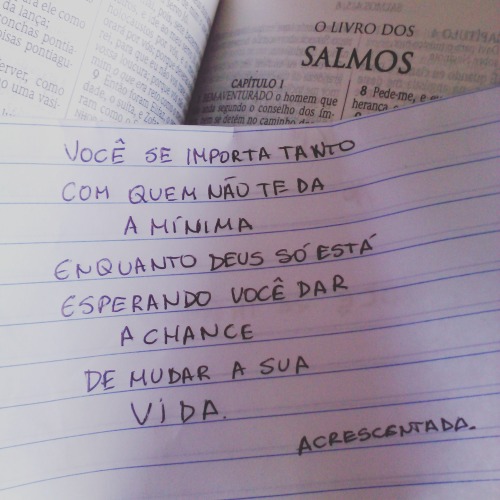 ara ele como
da lança;
onchas pontia-
oisas pontiagu-
erver, como
o uma vasi-
O LIVRO DOS
SALMOS
CAPÍTULO 1
BEM-AVENTURADO o homem que
segundo o conselho dos ím-
se detém no caminho
8 Pede-me, e
herança
VOCÊ SE IMPORTA TANTO
COM QUEM NÃO TE DA
A MÍNIMA
ENQUANTO DEUS SÓ ESTÁ
ESPERANDO VOCÊ DAR
A CHANCE
DE MUDAR A SUA
VIDA.
ACRESCENTADA.